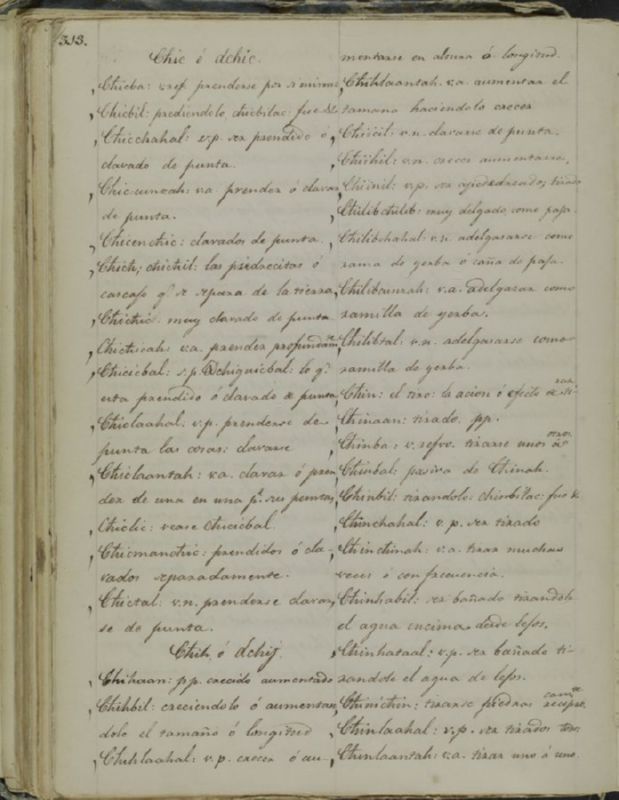 313.
Chic ó dchic.
Chicba: vref. prenderse por si mismo
Chicbil: prendiendolo, chicbilac: fue &.
Chicchahal: v.p. ser prendido ó
clavado de punta.
Chiccuncah: v.a. prender ó clavar
de punta.
Chicenchic: clavados de punta.
Chich; chichil: las piedrecitas ó
cascajo q.e se separa de la tierra
Chichic: muy clavado de punta
Chichicah: v.a. prender profundam.te
Chicicbal: s.p. Dchiquicbal: lo q.e
esta prendido ó clavado de punta
Chiclaahal: v.p. prenderse de
punta las cosas: clavarse
Chiclaantah: v.a. clavar ó pren
der de una en una p.r sus puntas
Chiclic: vease Chicicbal.
Chicmanchic: prendidos ó cla-
vados separadamente.
Chictal: v.n. prenderse clavar
se de punta.
Chih ó dchij.
Chihaan: pp. crecido aumentado
Chihbil: creciendolo ó aumentan
dolo el tamaño ó longitud
Chihlaahal: v.p. crecer ó au-
mentarse en altura ó longitud.
Chihlaantah: v.a. aumentar el
tamano haciendolo crecer
Chiicil: v.n. clavarse de punta.
Chiihil: v.n. crecer aumentarse.
Chiinil: v.p. ser apedreado; tirado
Chilibchilib: muy delgado, como paja.
Chilibchahal: v.n. adelgasarse como
rama de yerba ó caña de paja.
Chilibcunah: v.a. adelgasar como
ramilla de yerba.
Chilibtal: v.n. adelgasarse como
ramilla de yerba.
Chin: el tiro: la acion ó efecto de ti-
rar
Chinaan: tirado. pp.
Chinba: v. refre. tirarse unos á
otros.
Chinbal: pasiva de Chinah.
Chinbil: tirandolo: chinbilac: fue &.
Chinchahal: v.p. ser tirado
Chinchinah: v.a. tirar muchas
veces ó con frecuencia.
Chinhabil: ser bañado tirandole
el agua encima desde lejos.
Chinhataal: v.p. ser bañado ti-
randole el agua de lejos.
Chinichin: tirarse piedras recipro
cam.te
Chinlaahal: v.p. ser tirados todos
Chinlaantah: v.a. tirar uno á uno.